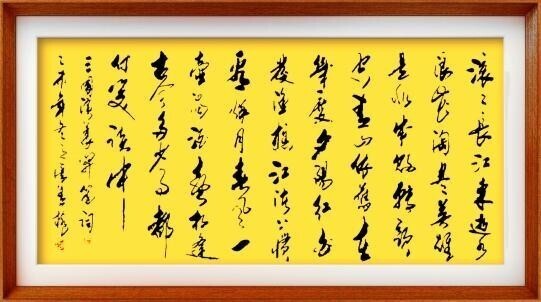 滚滚长江东逝水
浪花淘尽英雄
是非成败转头
空青山依旧在
几度夕阳红白
发渔樵江渚上惯
看秋月春风一
壶浊酒喜相逢
古今多少事都
付笑谈中
三国演义开篇词